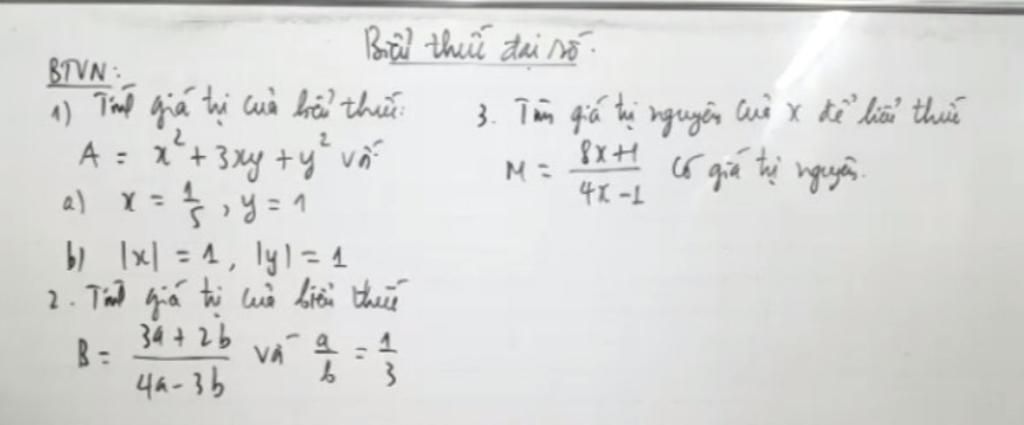 Biểu thức đại số.
BTVN:
1) Tính giá trị của biểu thức:
A = x² + 3xy + y² với
a) x = 1/5, y = 1
b) |x| = 1, |y| = 1
2. Tính giá trị của biểu thức
B = (3a + 2b)/(4a - 3b) với a/b = 1/3
3. Tìm giá trị nguyên của x để biểu thức
M = (8x+1)/(4x-1) có giá trị nguyên.